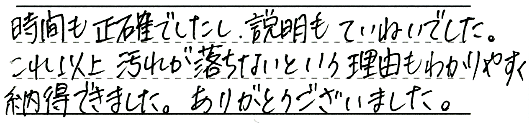 時間も正確でしたし、説明もていねいでした。
これ以上汚れが落ちないという理由もわかりやすく
納得できました。ありがとうございました。